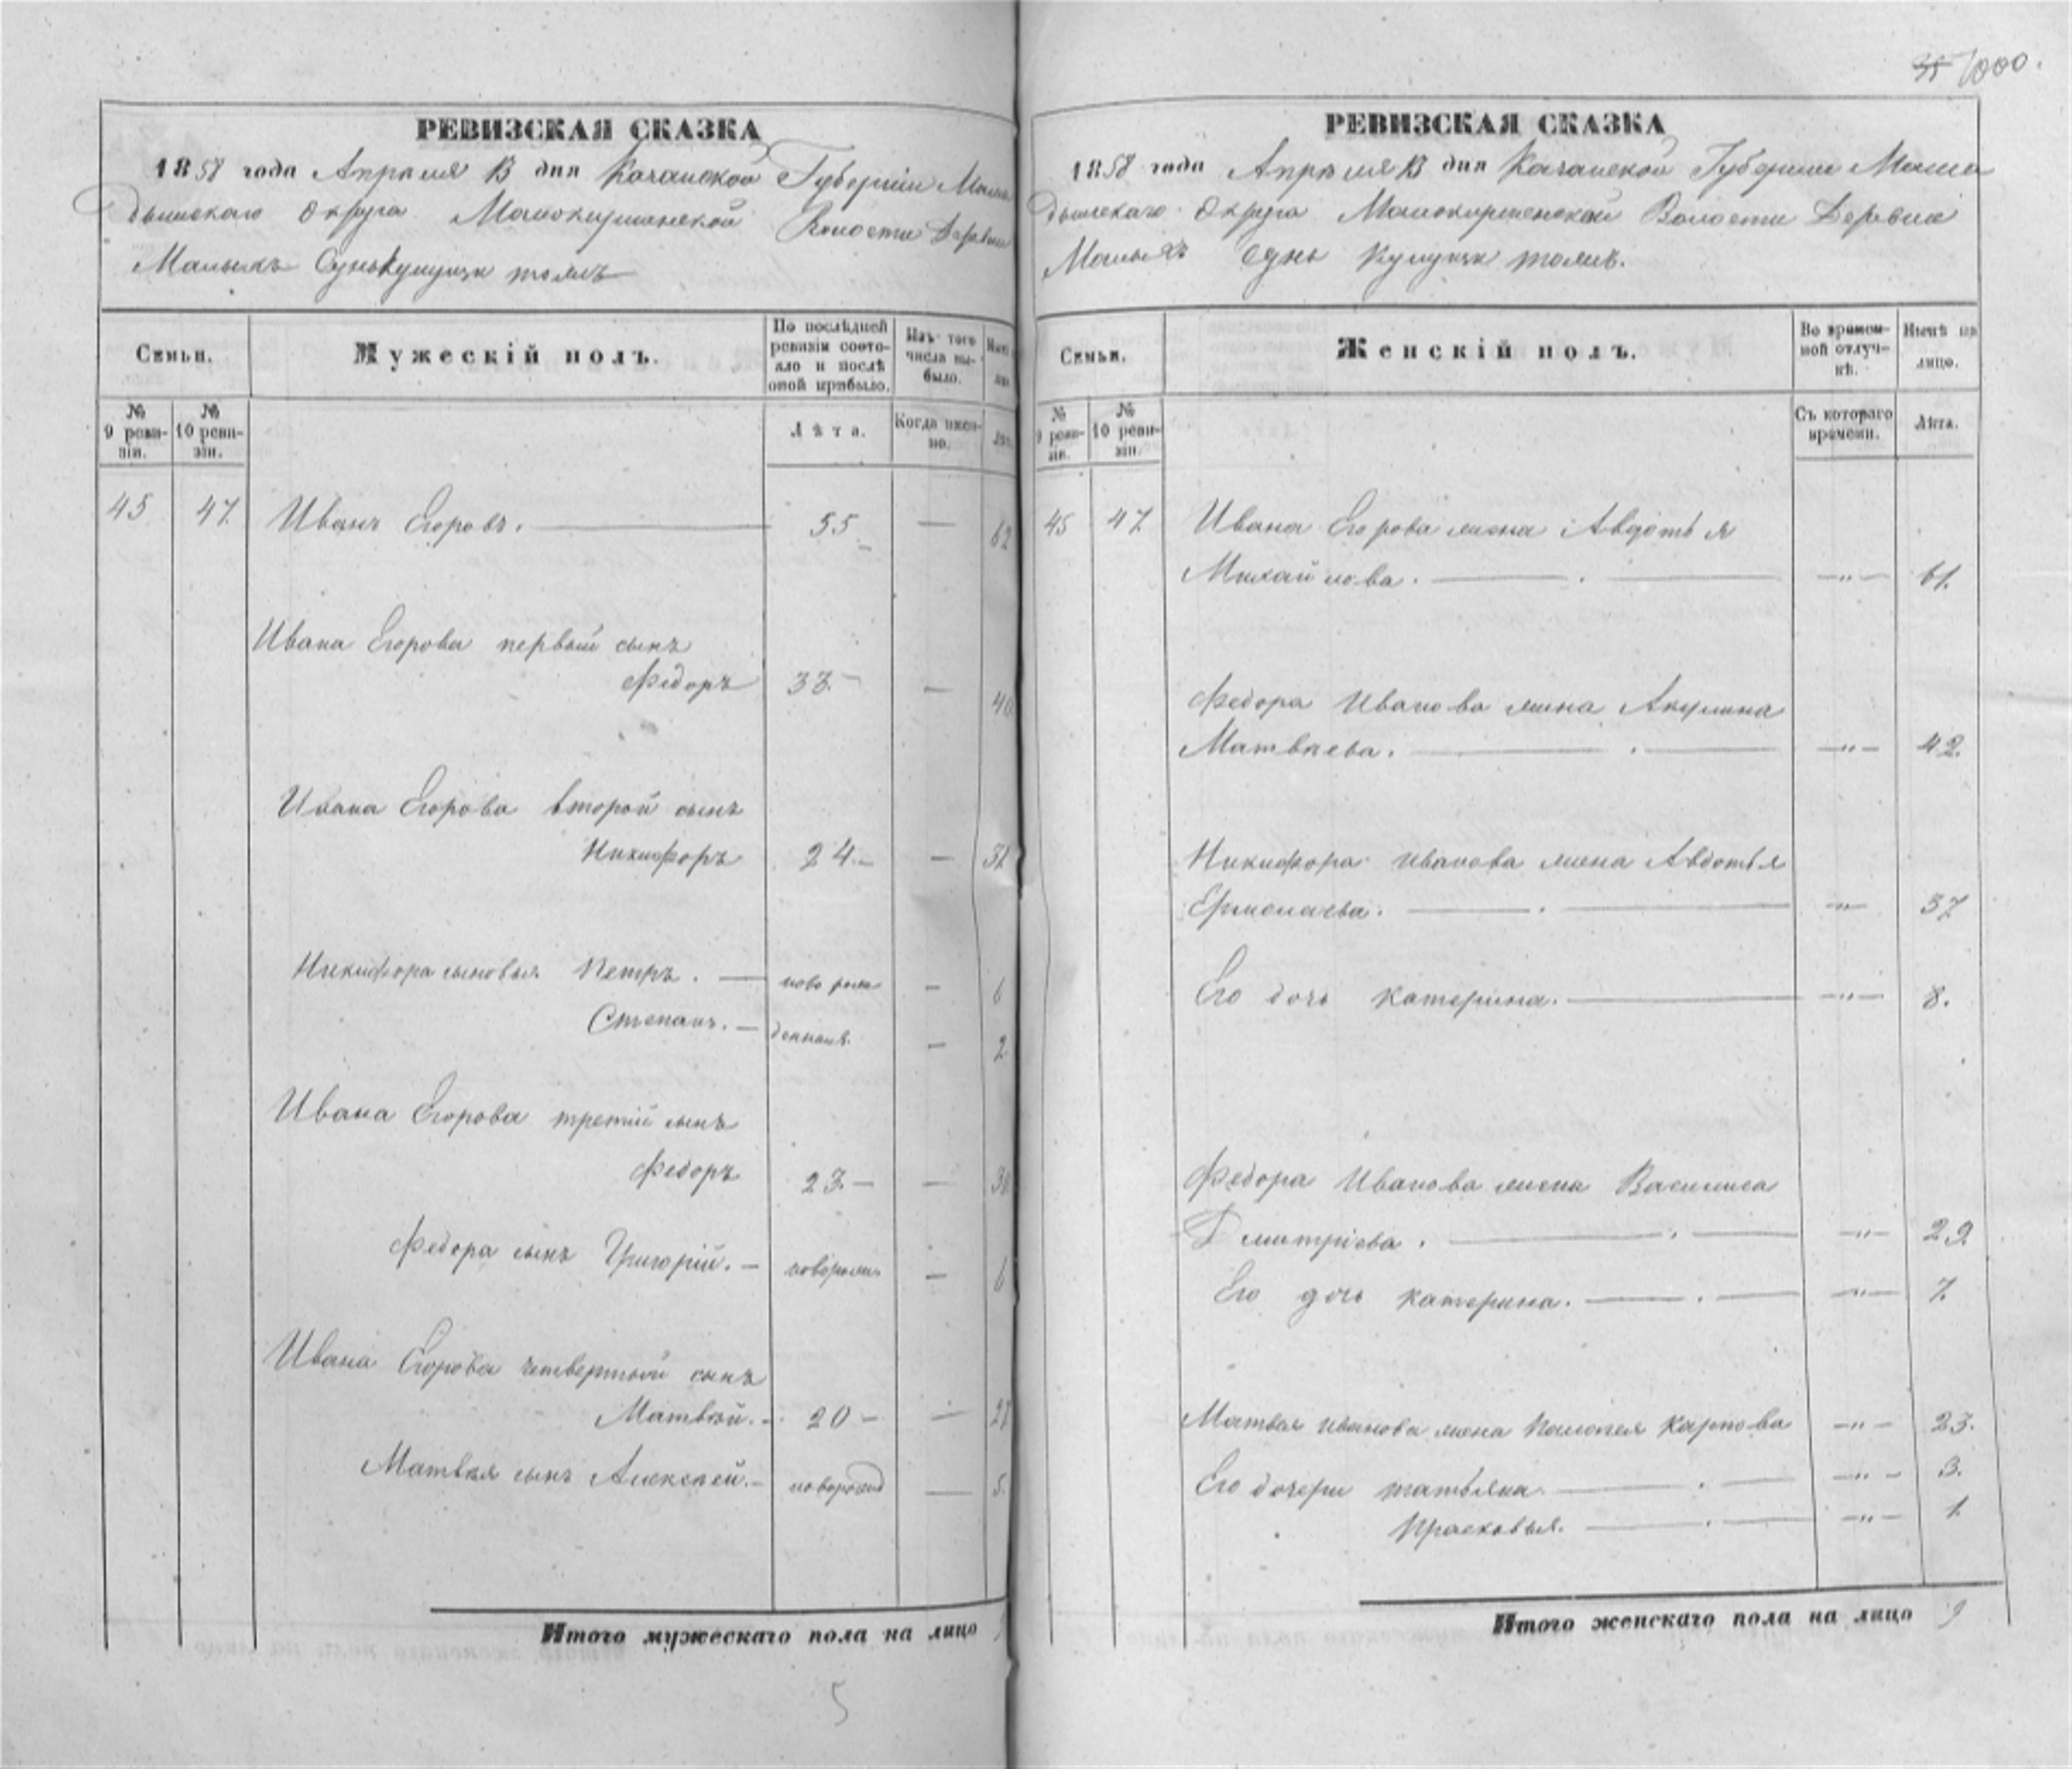 1000.
РЕВИЗСКАЯ СКАЗКА
1858 года Апрѣля 13 дня Казанской Губерніи Мама
дышскаго Округа Малокирменской Волости Деревни
Малыхъ Сунь
Семьи.
Мужескій полъ.
По послѣдней
ревизіи состо-
яло и послѣ
оной прибыло.
Изъ того
числа вы-
было.
№
9 реви-
зіи.
№
10 реви-
зіи.
Лѣта.
Когда имен-
но.
45 47 Иванъ Егоровъ. 55 — 62
Ивана Егорова первый сынъ
Федоръ 33. — 40
Ивана Егорова второй сынъ
Никифоръ 24. — 31
Никифора сыновья Петръ. — ново рож — 6
Степанъ. — — 2
Ивана Егорова третій сынъ
Федоръ 23. — — 30
Федора сынъ Григорій. — новорож — 6
Ивана Егорова четвертый сынъ
Матвѣй. — 20 — — 27
Матвѣя сынъ Алексѣй. — новорожд — 5.
Итого мужескаго пола на лицо
5
РЕВИЗСКАЯ СКАЗКА
1858 года Апрѣля 13 дня Казанской Губерніи Мама
дышскаго Округа Малокирменской Волости Деревни
Малыхъ Сунь
Семьи.
Женскій полъ.
Во времен-
ной отлуч-
кѣ.
Нынѣ на
лицо.
№
9 реви-
зіи.
№
10 реви-
зіи.
Съ котораго
времени.
Лѣта.
45 47 Ивана Егорова жена Авдотья
Михайлова. —"— 61.
Федора Иванова жена Акулина
Матвѣева. —"— 42.
Никифора Иванова жена Авдотья
Ермолаева. —"— 37
Его дочь Катерина. —"— 8.
Федора Иванова жена Василиса
Дмитріева. —"— 29.
Его дочь Катерина. —"— 7.
Матвѣя Иванова жена Карпова —"— 23.
Его дочери Татьяна —"— 3.
Прасковья. —"— 1.
Итого женскаго пола на лицо 9